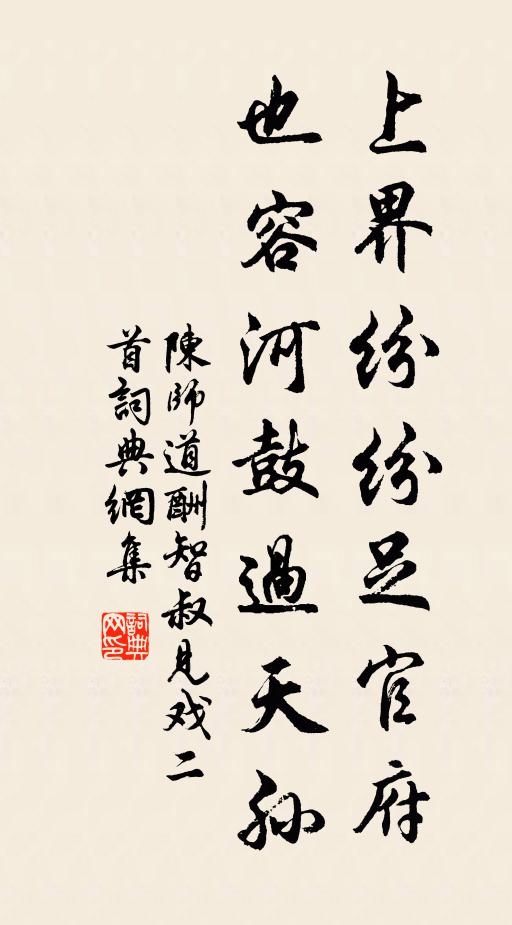 上界紛紛足官府
也容河鼓過天孫
陳師道酬智叔見戏二
首詞典網集
詞典
网印